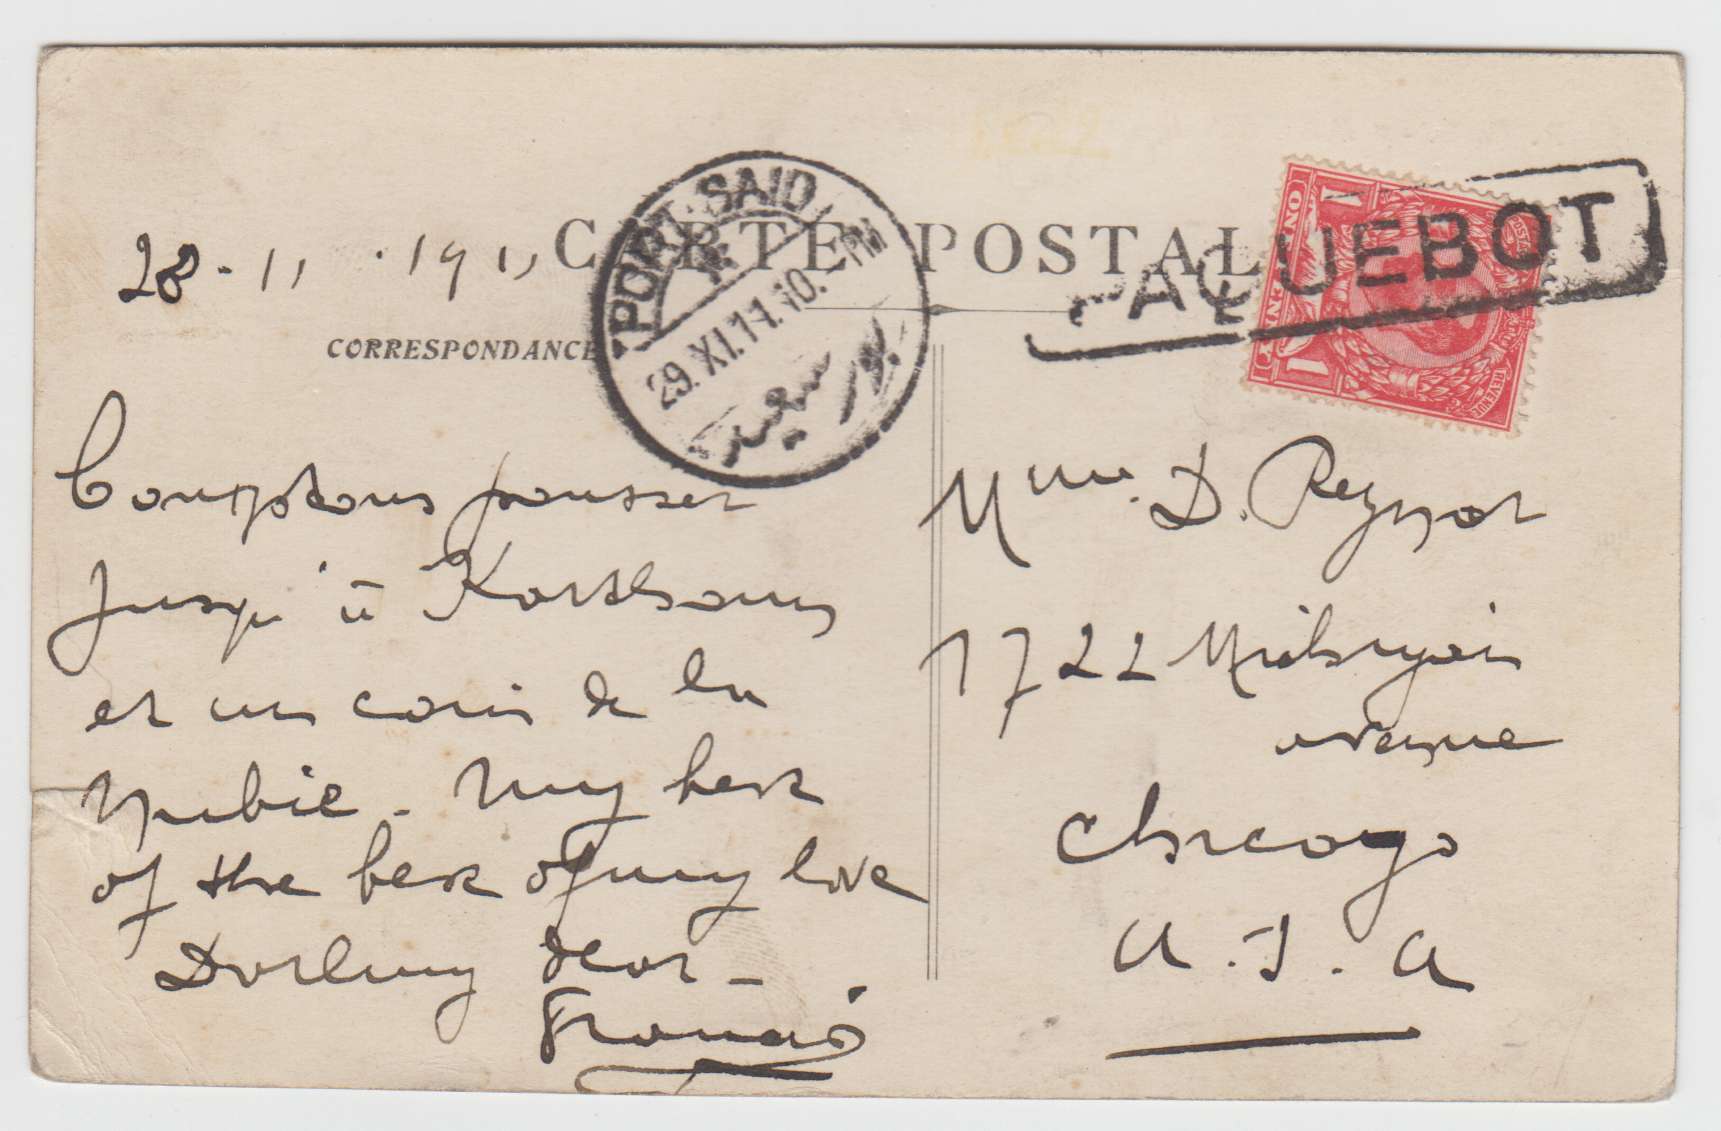 28.11.1911
CARTE POSTALE
PORT-SAID
29.XI.11.10.-PM
بور سعيد
PAQUEBOT
ONE PENNY
1
1
POSTAGE
REVENUE
CORRESPONDANCE
Comptons pousser
jusqu'à Karthoum
et un coin de la
Nubie. My best
of the best of my love
Darling dear -
Francis
Mme. D. Reynor
1722
avenue
Chicago
U.S.A